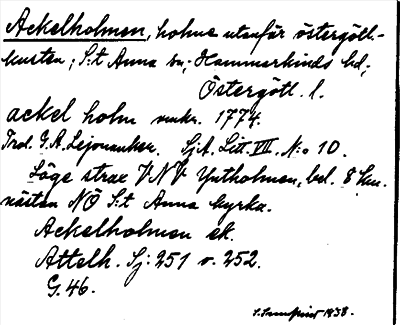 Ackelholmen, holme utanför östergötl.-
kusten; S:t Anna sn; Hammarkinds hd;
Östergötl. l.
ackel holm omkr. 1774.
Trol. G. A. Lejonanker. Sjk. Litt. VIII. N:o 10.
Läge strax VNV Ytholmen, bel. 8 km.
nästan NÖ S:t Anna kyrka.
Ackelholmen ek.
Attelh. Sj: 251 o. 252.
G. 46.
1938.